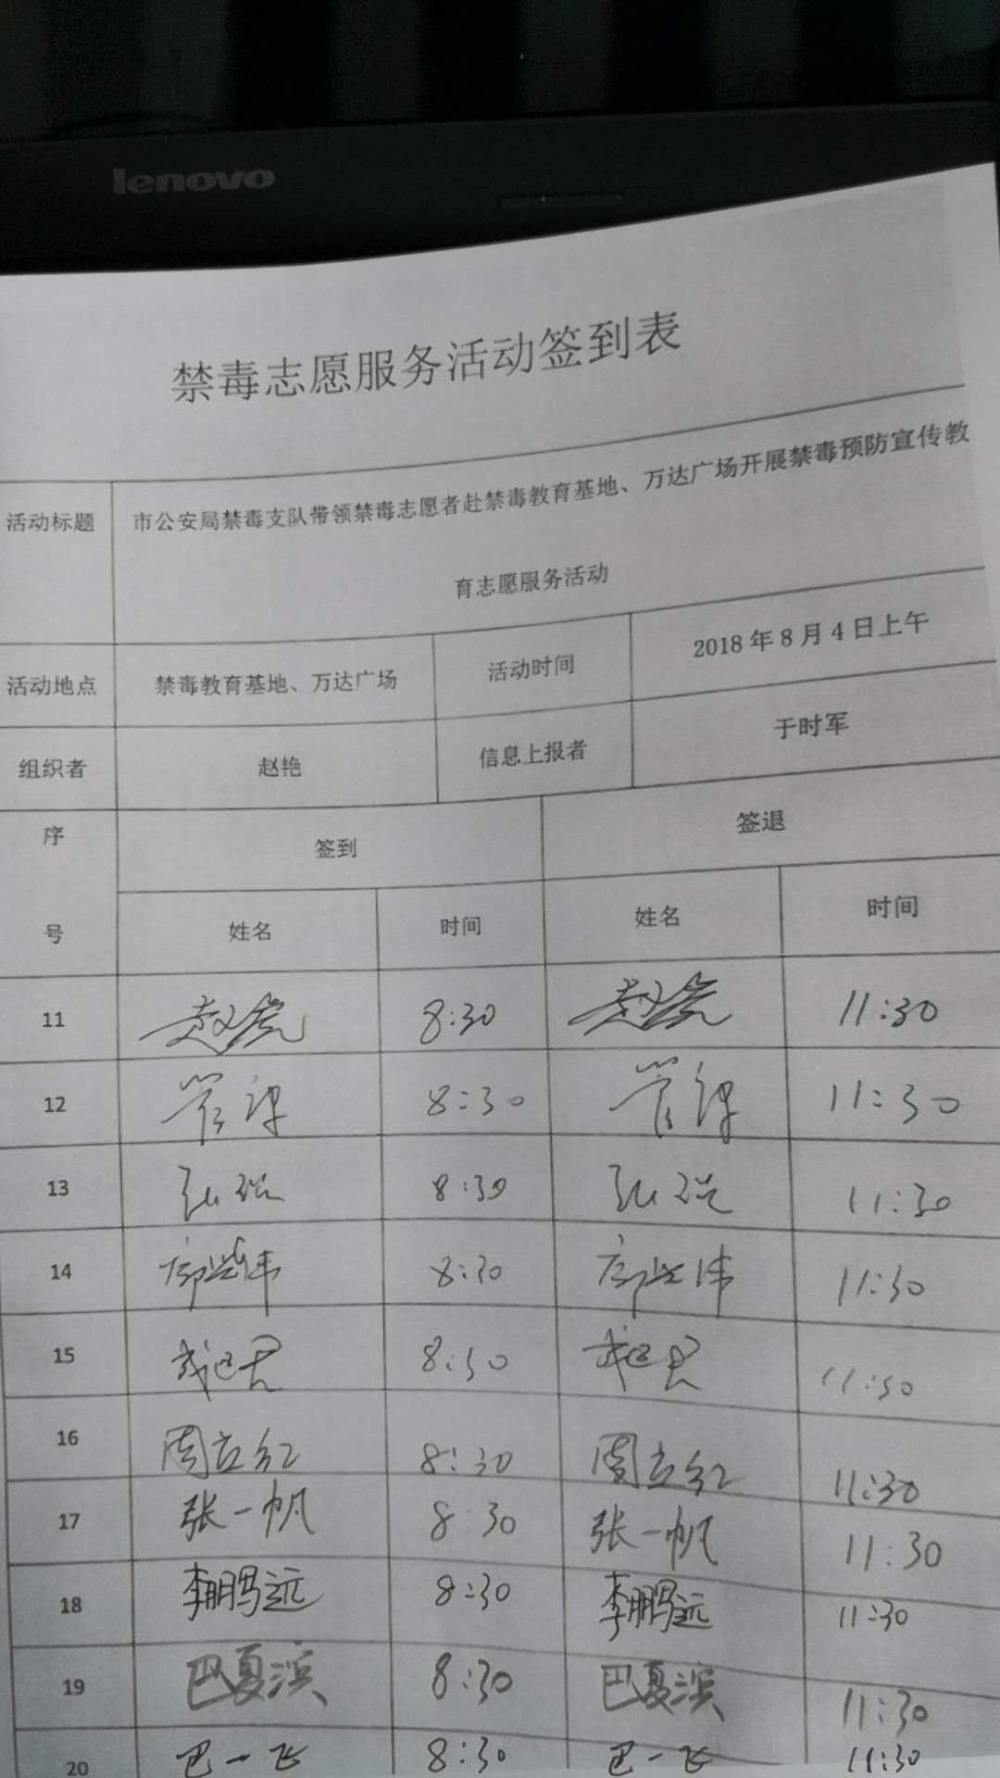 lenovo
禁毒志愿服务活动签到表
活动标题 市公安局禁毒支队带领禁毒志愿者赴禁毒教育基地、万达广场开展禁毒预防宣传教
育志愿服务活动
活动地点 禁毒教育基地、万达广场 活动时间 2018年8月4日上午
组织者 赵艳 信息上报者 于时军
序 签到 签退
号 姓名 时间 姓名 时间
11 8:30 11:30
12 8:30 11:30
13 8:30 11:30
14 8:30 11:30
15 8:30 11:30
16 周立红 8:30 周立红 11:30
17 张一帆 8:30 张一帆 11:30
18 李鹏远 8:30 李鹏远 11:30
19 巴夏滨 8:30 巴夏滨 11:30
20 巴一飞 8:30 巴一飞 11:30